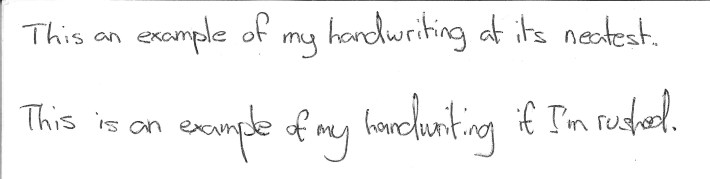 This an example of my handwriting at its neatest.
This is an example of my handwriting if I'm rushed.